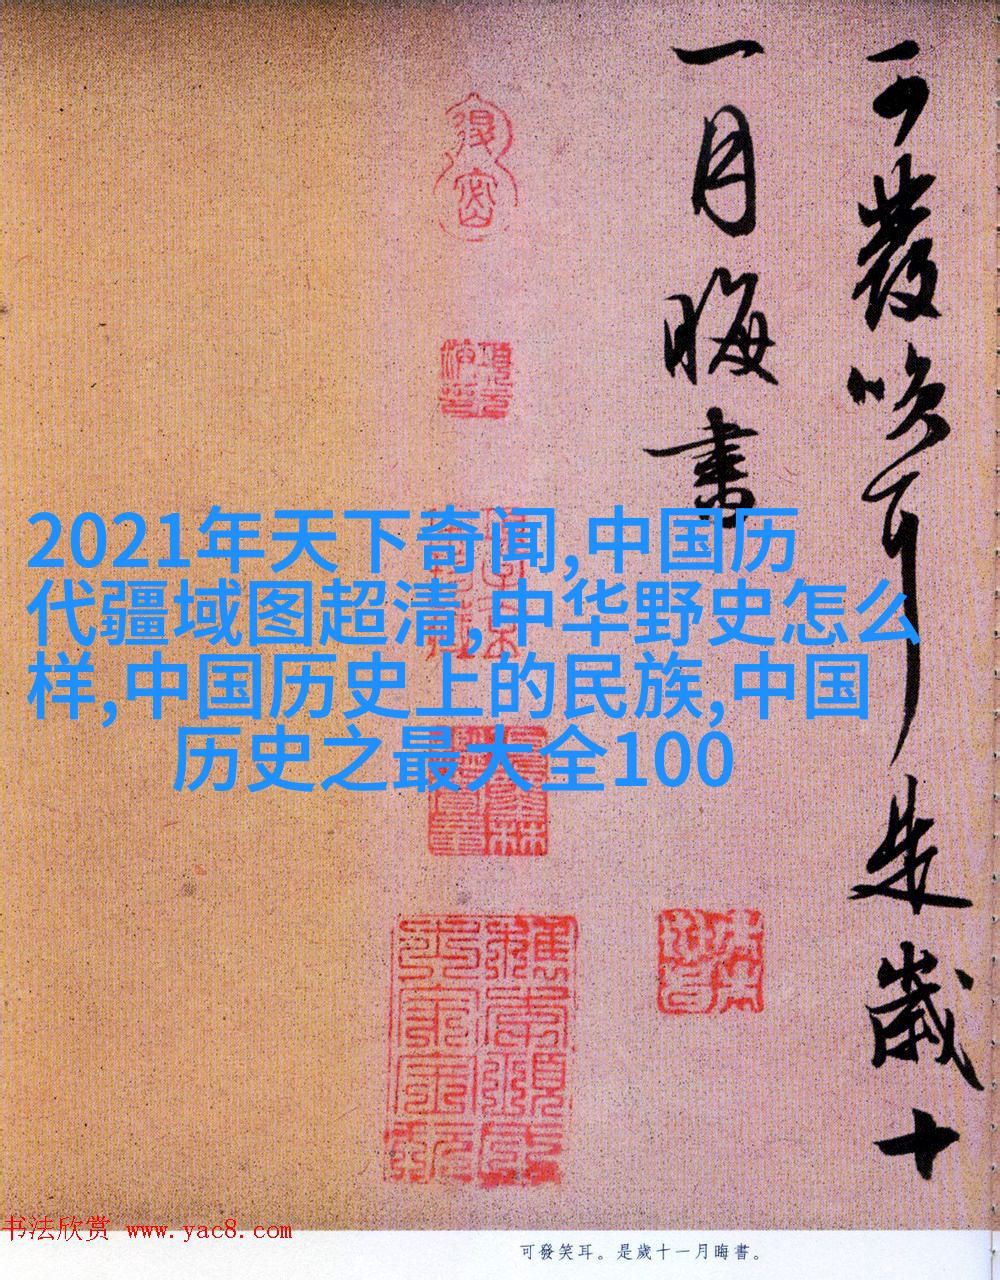 可發笑耳是歲十
一月晦書
2021年天下奇闻,中国历
代疆域图超清,中华野史怎么
样,中国历史上的民族,中国
历史之最大全100
书法欣赏 www.yac8.com
可發笑耳。是歲十一月晦書。